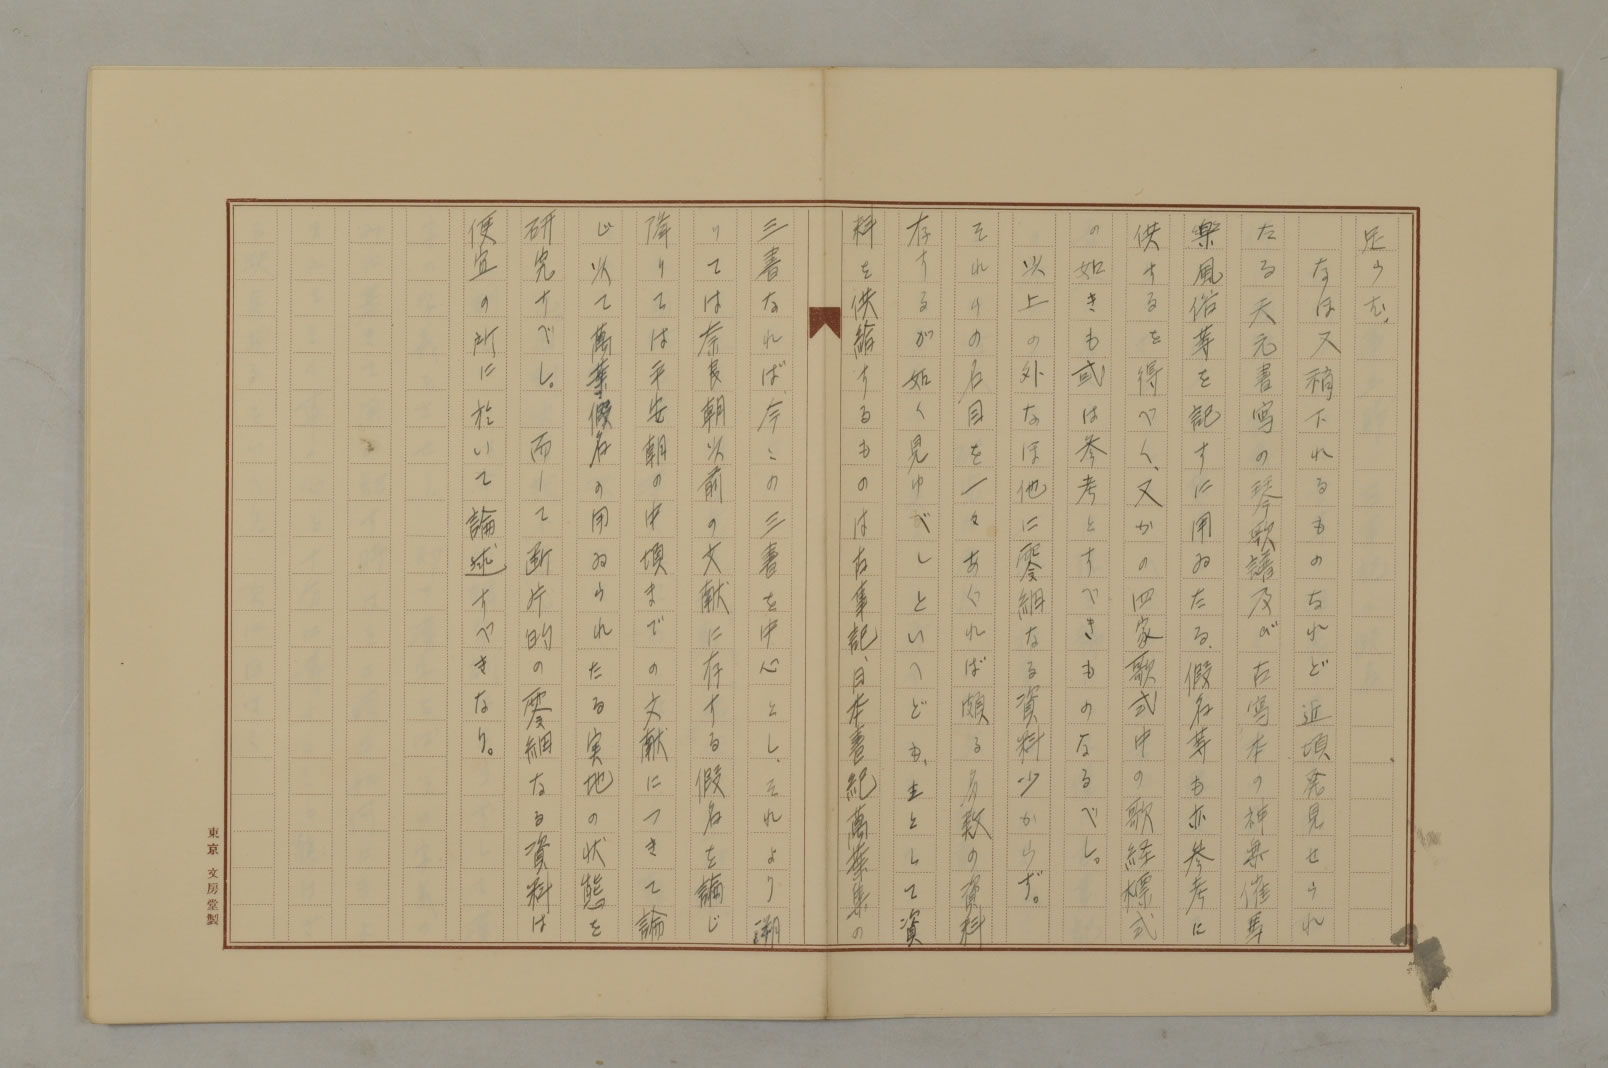 足らむ、
なほ又稍下れるものなれど近頃発見せられ
たる天元書写の琴歌譜及び古写本の神楽催馬
楽風俗等を記すに用ゐたる、假名等も亦参考に
供するを得べく、又かの四家歌式中の歌経標式
の如きも或は参考とすべきものなるべし。
以上の外なほ他に零細なる資料少からず。
それらの名目を一々あぐれば頗る多数の資料
存するが如く見ゆべしといへども、主として資
料を供給するものは古事記、日本書紀萬葉集の
三書なれば、今この三書を中心とし、それより溯
りては奈良朝以前の文献に存する假名を論じ
降りては平安朝の中頃までの文献につきて論
じ以て萬葉假名の用ゐられたる実地の状態を
研究すべし。而して断片的の零細なる資料は
便宜の所に於いて論述すべきなり。
東京 文房堂製